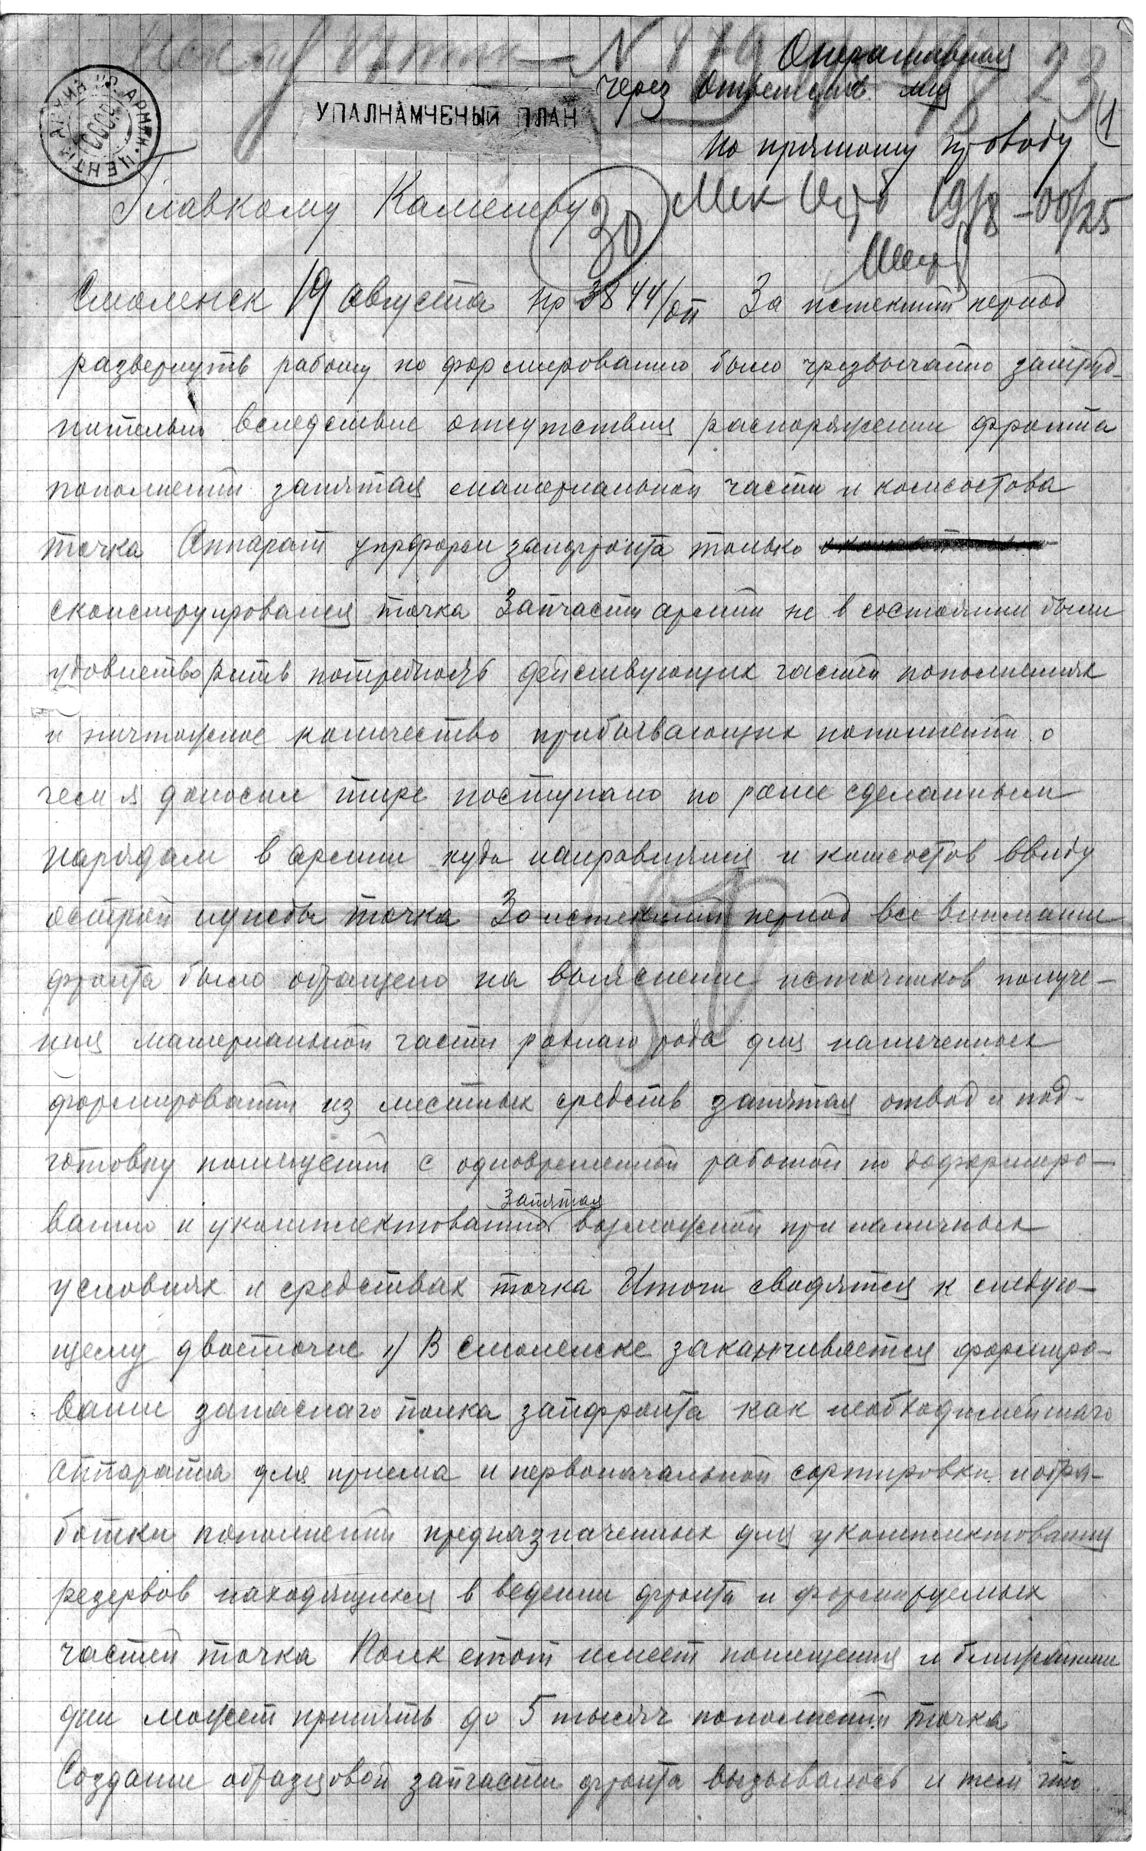 Оперативная
через
по прямому проводу
1
УПАЛНАМЧЕНЫЙ ПЛАН
Главкому Каменеву
30
19/8 - 00/25
Смоленск 19 августа нр 3844/оп За истекший период
развернуть работу по формированию было чрезвычайно затруд-
нительно вследствие отсутствия распоряжении фронта
пополнений запятая материальной части и комсостава
точка Аппарат упрформ запфронта только
сконструировался точка Запчасти армии не в состоянии были
удовлетворить потребность действующих частей пополнениях
и ничтожное количество прибывающих пополнений о
чем я доносил тире поступало по ранее сделанным
нарядам в армии куда направлялся и комсостав ввиду
острой нужды точка За истекший период все внимание
фронта было обращено на выяснение источников получе-
ния материальной части разного рода для намеченных
формирований из местных средств запятая отвод и под-
готовку помещений с одновременной работой по доформиро-
ванию и укомплектованию запятая возможной при наличных
условиях и средствах точка Итоги сводятся к следую-
щему двоеточие 1) В Смоленске заканчивается формиро-
вание запаснаго полка запфронта как необходимейшаго
аппарата для приема и первоначальной сортировки и обра-
ботки пополнений предназначенных для укомплектования
резервов находящихся в ведении фронта и формируемых
частей точка Полк етот имеет помещения и ближайшие
дни может принять до 5 тысяч пополнений точка
Создание образцовой запчасти фронта вызывалось и тем что